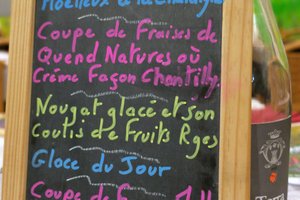 Moelleux à la Châtaigne
Coupe de Fraises de
Quend Natures où
Crème Façon Chantilly
Nougat glacé et son
Coulis de Fruits Rges
Glace du Jour
Coupe de